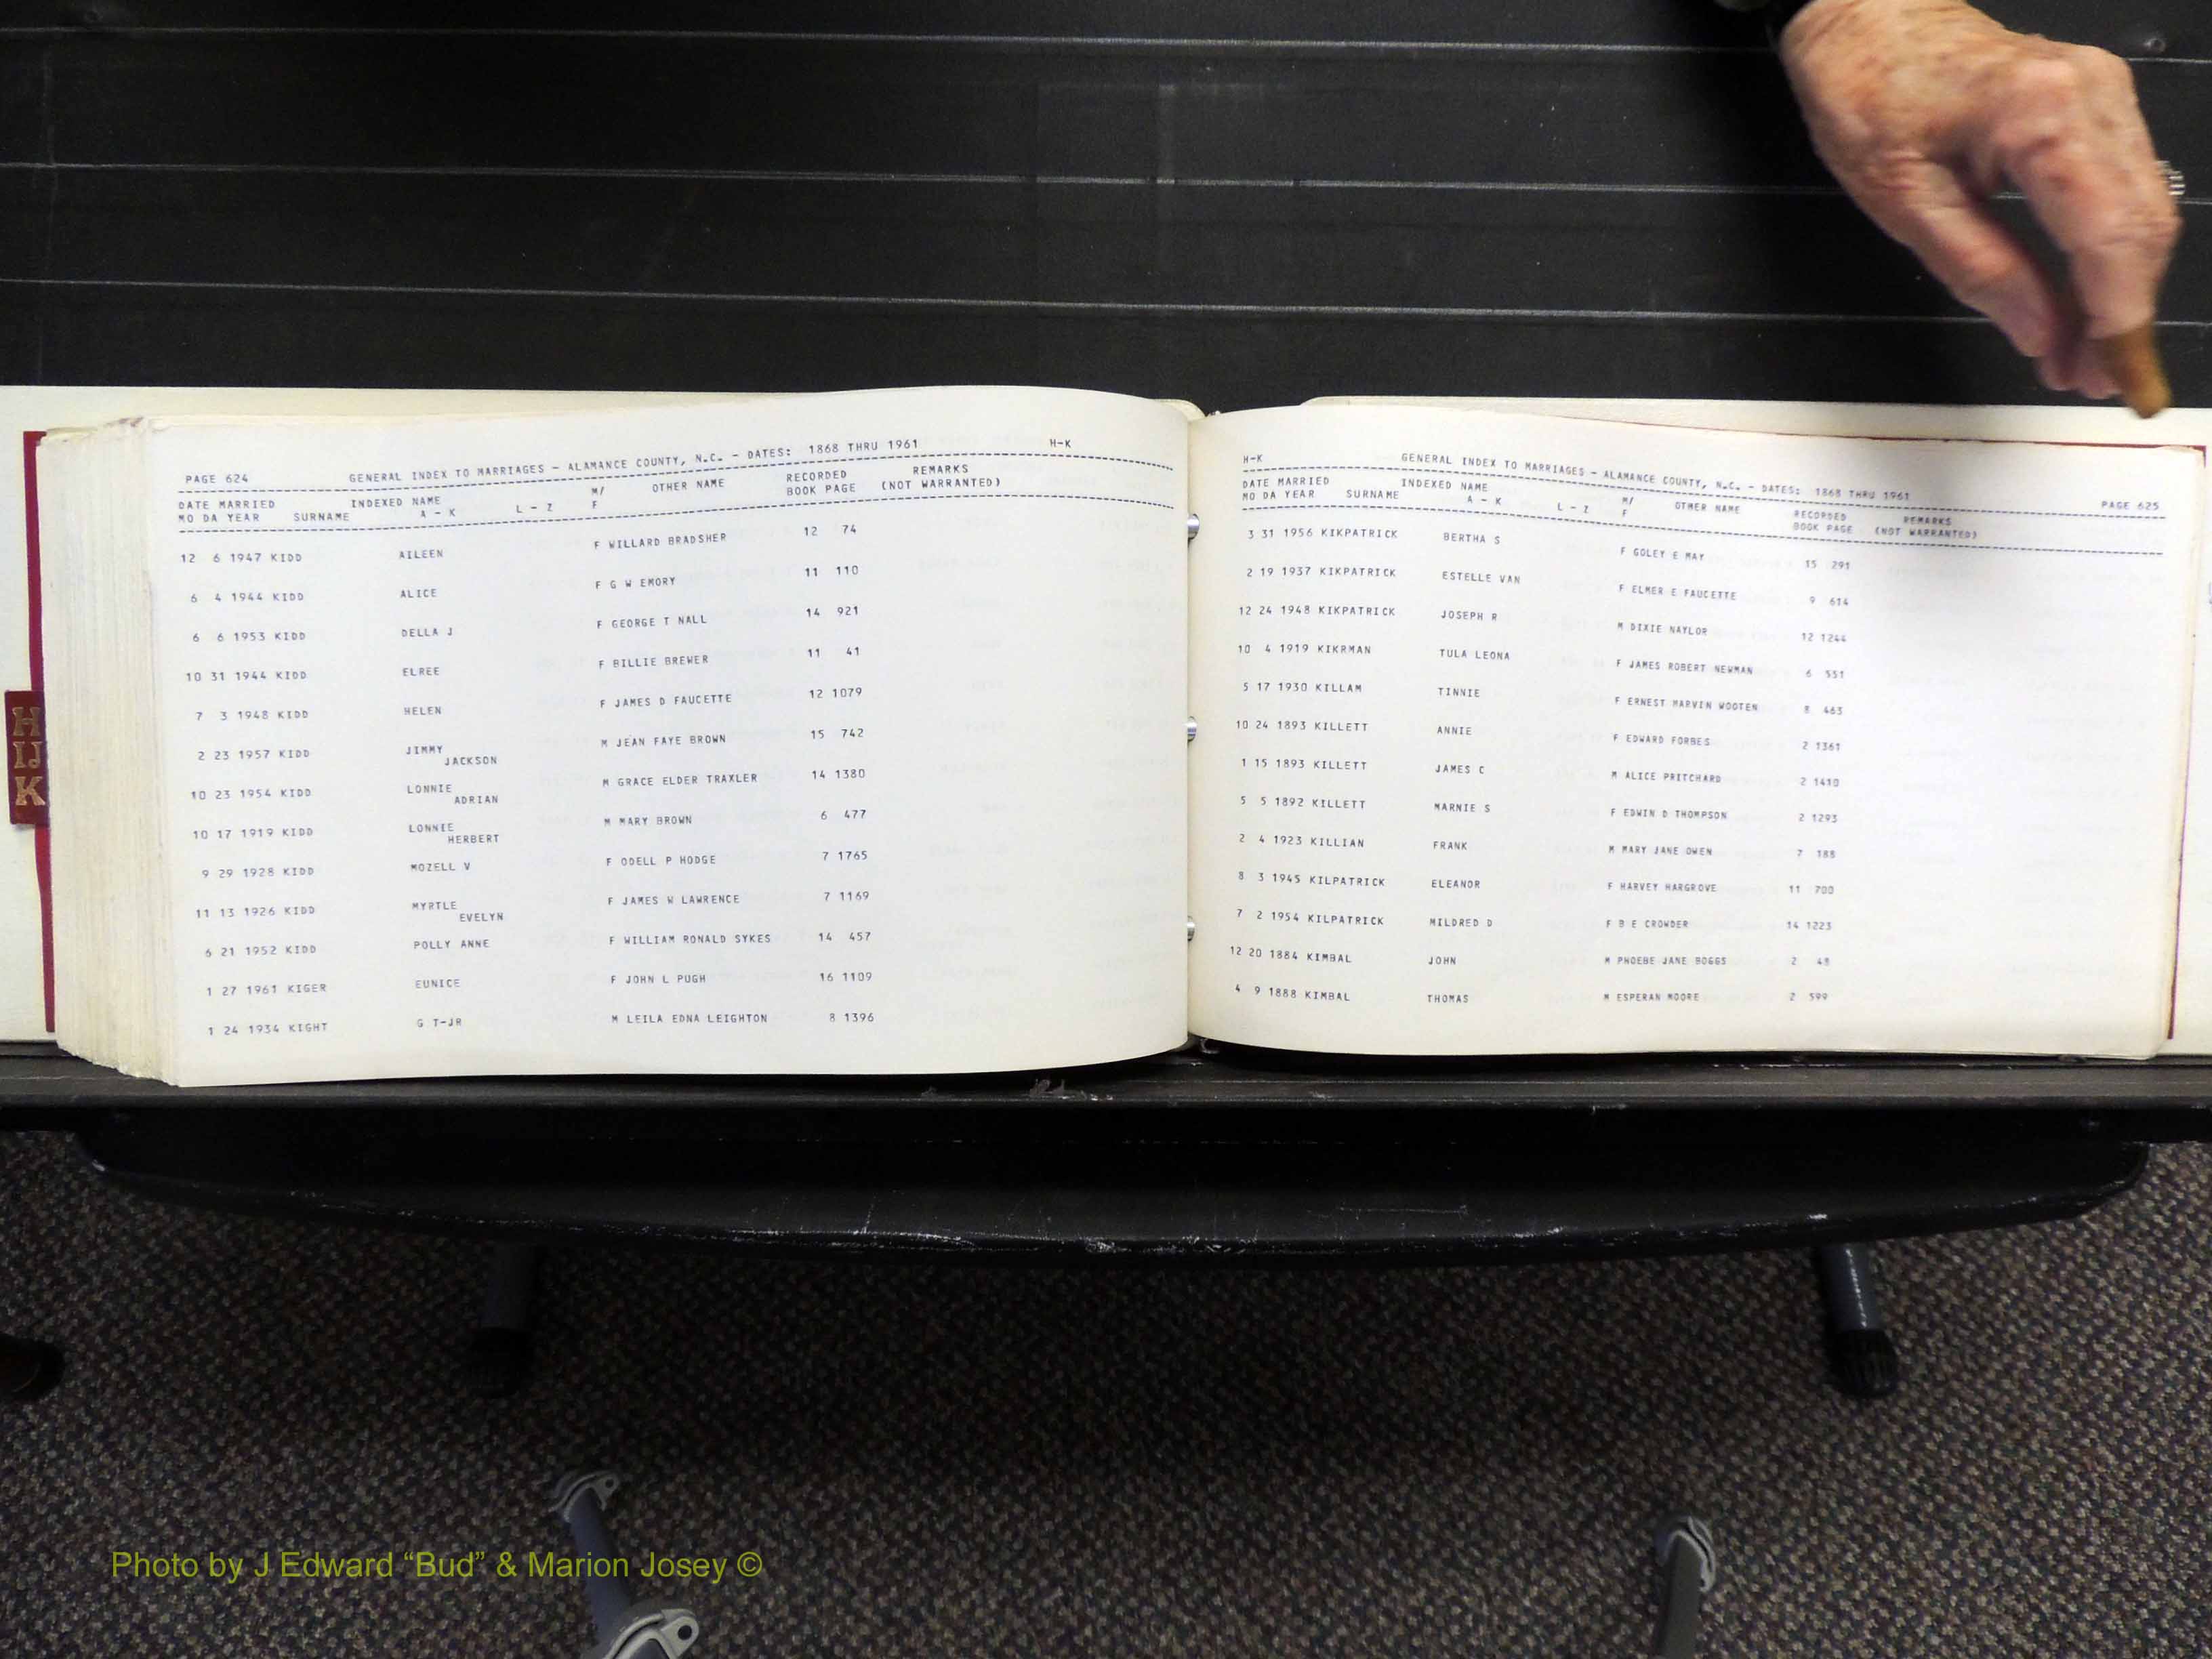 H
IJ
K
PAGE 624 GENERAL INDEX TO MARRIAGES - ALAMANCE COUNTY, N.C. - DATES: 1868 THRU 1961 H-K
DATE MARRIED INDEXED NAME M/ OTHER NAME RECORDED REMARKS
MO DA YEAR SURNAME A - K L - Z F BOOK PAGE (NOT WARRANTED)
12 6 1947 KIDD AILEEN F WILLARD BRADSHER 12 74
6 4 1944 KIDD ALICE F G W EMORY 11 110
6 6 1953 KIDD DELLA J F GEORGE T NALL 14 921
10 31 1944 KIDD ELREE F BILLIE BREWER 11 41
7 3 1948 KIDD HELEN F JAMES D FAUCETTE 12 1079
2 23 1957 KIDD JIMMY M JEAN FAYE BROWN 15 742
JACKSON
10 23 1954 KIDD LONNIE M GRACE ELDER TRAXLER 14 1380
ADRIAN
10 17 1919 KIDD LONNIE M MARY BROWN 6 477
HERBERT
9 29 1928 KIDD MOZELL V F ODELL P HODGE 7 1765
11 13 1926 KIDD MYRTLE F JAMES W LAWRENCE 7 1169
EVELYN
6 21 1952 KIDD POLLY ANNE F WILLIAM RONALD SYKES 14 457
1 27 1961 KIGER EUNICE F JOHN L PUGH 16 1109
1 24 1934 KIGHT G T-JR M LEILA EDNA LEIGHTON 8 1396
H-K GENERAL INDEX TO MARRIAGES - ALAMANCE COUNTY, N.C. - DATES: 1868 THRU 1961 PAGE 625
DATE MARRIED INDEXED NAME M/ OTHER NAME RECORDED REMARKS
MO DA YEAR SURNAME A - K L - Z F BOOK PAGE (NOT WARRANTED)
3 31 1956 KIKPATRICK BERTHA S F GOLEY E MAY 15 291
2 19 1937 KIKPATRICK ESTELLE VAN F ELMER E FAUCETTE 9 614
12 24 1948 KIKPATRICK JOSEPH R M DIXIE NAYLOR 12 1244
10 4 1919 KIKRMAN TULA LEONA F JAMES ROBERT NEWMAN 6 551
5 17 1930 KILLAM TINNIE F ERNEST MARVIN WOOTEN 8 463
10 24 1893 KILLETT ANNIE F EDWARD FORBES 2 1361
1 15 1893 KILLETT JAMES C M ALICE PRITCHARD 2 1410
5 5 1892 KILLETT MARNIE S F EDWIN D THOMPSON 2 1293
2 4 1923 KILLIAN FRANK M MARY JANE OWEN 7 188
8 3 1945 KILPATRICK ELEANOR F HARVEY HARGROVE 11 700
7 2 1954 KILPATRICK MILDRED D F B E CROWDER 14 1223
12 20 1884 KIMBAL JOHN M PHOEBE JANE BOGGS 2 48
4 9 1888 KIMBAL THOMAS M ESPERAN MOORE 2 599
Photo by J Edward “Bud” & Marion Josey ©